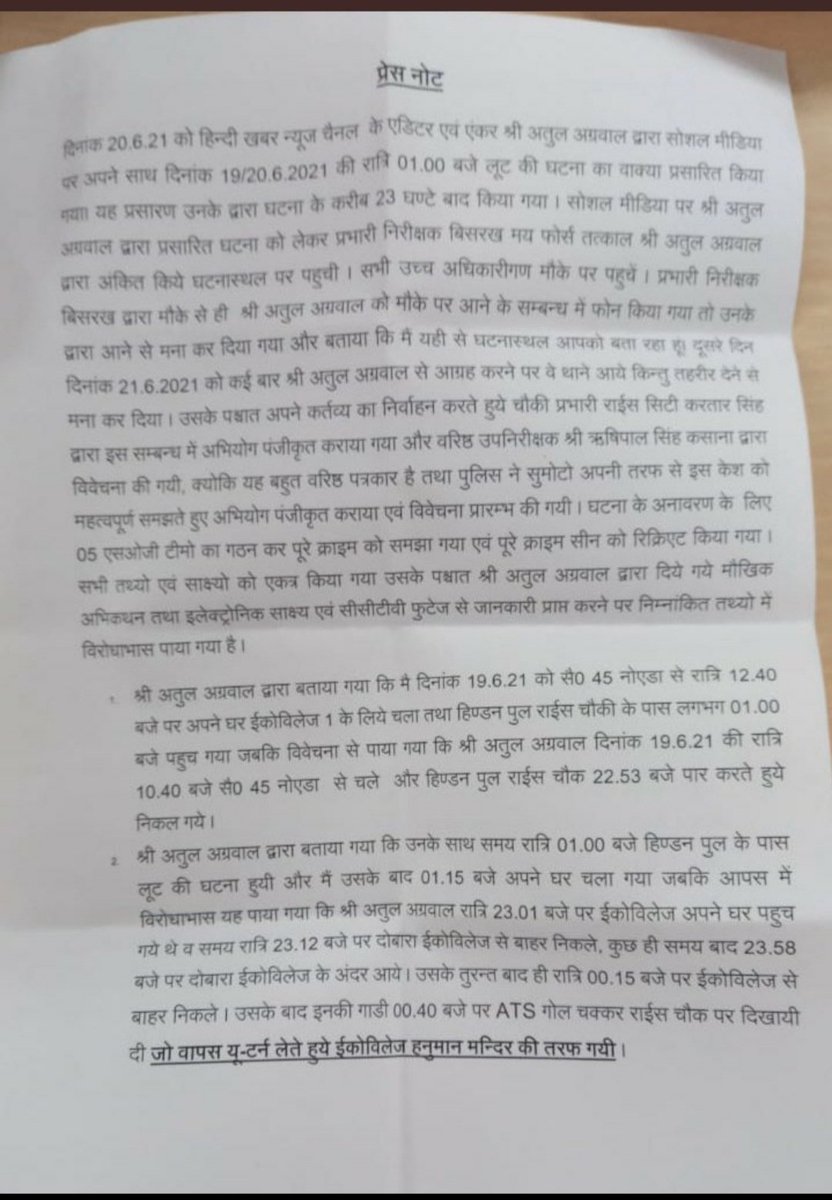 प्रेस नोट
दिनांक 20.6.21 को हिन्दी खबर न्यूज चैनल के एडिटर एवं एंकर श्री अतुल अग्रवाल द्वारा सोशल मीडिया
पर अपने साथ दिनांक 19/20.6.2021 की रात्रि 01.00 बजे लूट की घटना का वाक्या प्रसारित किया
गया। यह प्रसारण उनके द्वारा घटना के करीब 23 घण्टे बाद किया गया । सोशल मीडिया पर श्री अतुल
अग्रवाल द्वारा प्रसारित घटना को लेकर प्रभारी निरीक्षक बिसरख मय फोर्स तत्काल श्री अतुल अग्रवाल
द्वारा अंकित किये घटनास्थल पर पहुची । सभी उच्च अधिकारीगण मौके पर पहुचें । प्रभारी निरीक्षक
बिसरख द्वारा मौके से ही श्री अतुल अग्रवाल को मौके पर आने के सम्बन्ध में फोन किया गया तो उनके
द्वारा आने से मना कर दिया गया और बताया कि मैं यही से घटनास्थल आपको बता रहा हू। दूसरे दिन
दिनांक 21.6.2021 को कई बार श्री अतुल अग्रवाल से आग्रह करने पर वे थाने आये किन्तु तहरीर देने से
मना कर दिया । उसके पश्चात अपने कर्तव्य का निर्वाहन करते हुये चौकी प्रभारी राईस सिटी करतार सिंह
द्वारा इस सम्बन्ध में अभियोग पंजीकृत कराया गया और वरिष्ठ उपनिरीक्षक श्री ऋषिपाल सिंह कसाना द्वारा
विवेचना की गयी, क्योकि यह बहुत वरिष्ठ पत्रकार है तथा पुलिस ने सुमोटो अपनी तरफ से इस केश को
महत्वपूर्ण समझते हुए अभियोग पंजीकृत कराया एवं विवेचना प्रारम्भ की गयी । घटना के अनावरण के लिए
05 एसओजी टीमो का गठन कर पूरे क्राइम को समझा गया एवं पूरे क्राइम सीन को रिक्रिएट किया गया ।
सभी तथ्यो एवं साक्ष्यो को एकत्र किया गया उसके पश्चात श्री अतुल अग्रवाल द्वारा दिये गये मौखिक
अभिकथन तथा इलेक्ट्रोनिक साक्ष्य एवं सीसीटीवी फुटेज से जानकारी प्राप्त करने पर निम्नांकित तथ्यो में
विरोधाभास पाया गया है ।
1. श्री अतुल अग्रवाल द्वारा बताया गया कि मै दिनांक 19.6.21 को सै0 45 नोएडा से रात्रि 12.40
बजे पर अपने घर ईकोविलेज 1 के लिये चला तथा हिण्डन पुल राईस चौकी के पास लगभग 01.00
बजे पहुच गया जबकि विवेचना से पाया गया कि श्री अतुल अग्रवाल दिनांक 19.6.21 की रात्रि
10.40 बजे सै0 45 नोएडा से चले और हिण्डन पुल राईस चौक 22.53 बजे पार करते हुये
निकल गये ।
2. श्री अतुल अग्रवाल द्वारा बताया गया कि उनके साथ समय रात्रि 01.00 बजे हिण्डन पुल के पास
लूट की घटना हुयी और मैं उसके बाद 01.15 बजे अपने घर चला गया जबकि आपस में
विरोधाभास यह पाया गया कि श्री अतुल अग्रवाल रात्रि 23.01 बजे पर ईकोविलेज अपने घर पहुच
गये थे व समय रात्रि 23.12 बजे पर दोबारा ईकोविलेज से बाहर निकले, कुछ ही समय बाद 23.58
बजे पर दोबारा ईकोविलेज के अंदर आये । उसके तुरन्त बाद ही रात्रि 00.15 बजे पर ईकोविलेज से
बाहर निकले । उसके बाद इनकी गाडी 00.40 बजे पर ATS गोल चक्कर राईस चौक पर दिखायी
दी जो वापस यू-टर्न लेते हुये ईकोविलेज हनुमान मन्दिर की तरफ गयी ।